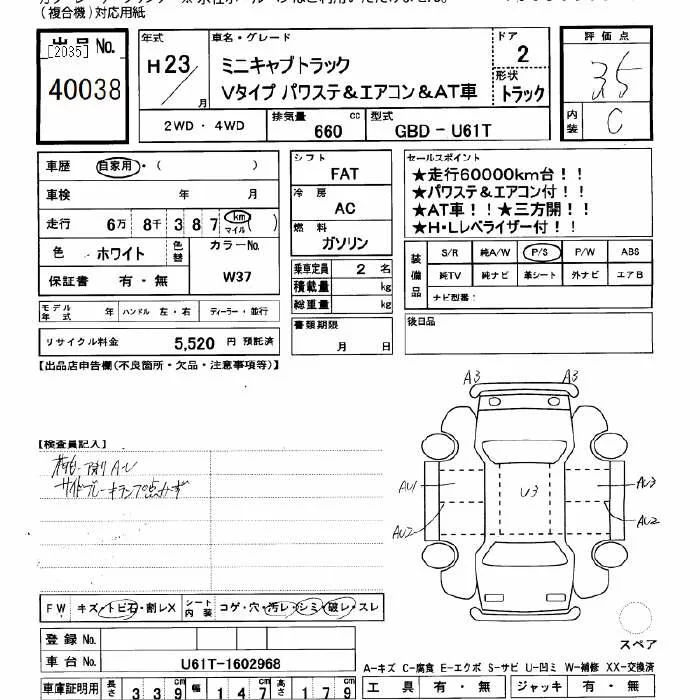 (複合機)対応用紙
出品No.
[2035]
40038
年式
H23/
月
車名・グレード
ミニキャブトラック
Vタイプ パワステ&エアコン&AT車
ドア
2
形状
トラック
2WD・4WD
排気量
660
cc
型式
GBD-U61T
評価点
3.5
内装
C
車歴
自家用・( )
車検 年 月
走行 6万 8千 3 8 7 km マイル ( )
色 ホワイト
色替
カラーNo.
W37
保証書 有・無
シフト
FAT
冷房
AC
燃料
ガソリン
乗車定員 2 名
積載量 kg
総重量 kg
セールスポイント
★走行60000km台!!
★パワステ&エアコン付!!
★AT車!!★三方開!!
★H・Lレベライザー付!!
装備品
S/R 純A/W P/S P/W ABS
純TV 純ナビ 革シート 外ナビ エアB
ナビ型番:
モデル年式 年 ハンドル 左・右 ディーラー・並行
リサイクル料金 5,520 円 預託済
書類期限
月 日
後日品
【出品店申告欄(不良箇所・欠品・注意事項等)】
【検査員記入】
サイドブレーキランプ点かず
A3 A3
AU1
U3
AU3
AU2
AU2
FW キズ・トビ石・割レX
シート内装 コゲ・穴・汚レ・シミ・破レ・スレ
登録No.
車台No. U61T-1602968
スペア
A-キズ C-腐食 E-エクボ S-サビ U-凹ミ W-補修 XX-交換済
車庫証明用 長さ 3 3 9 cm 幅 1 4 7 cm 高さ 1 7 9 cm
工具 有・無 ジャッキ 有・無